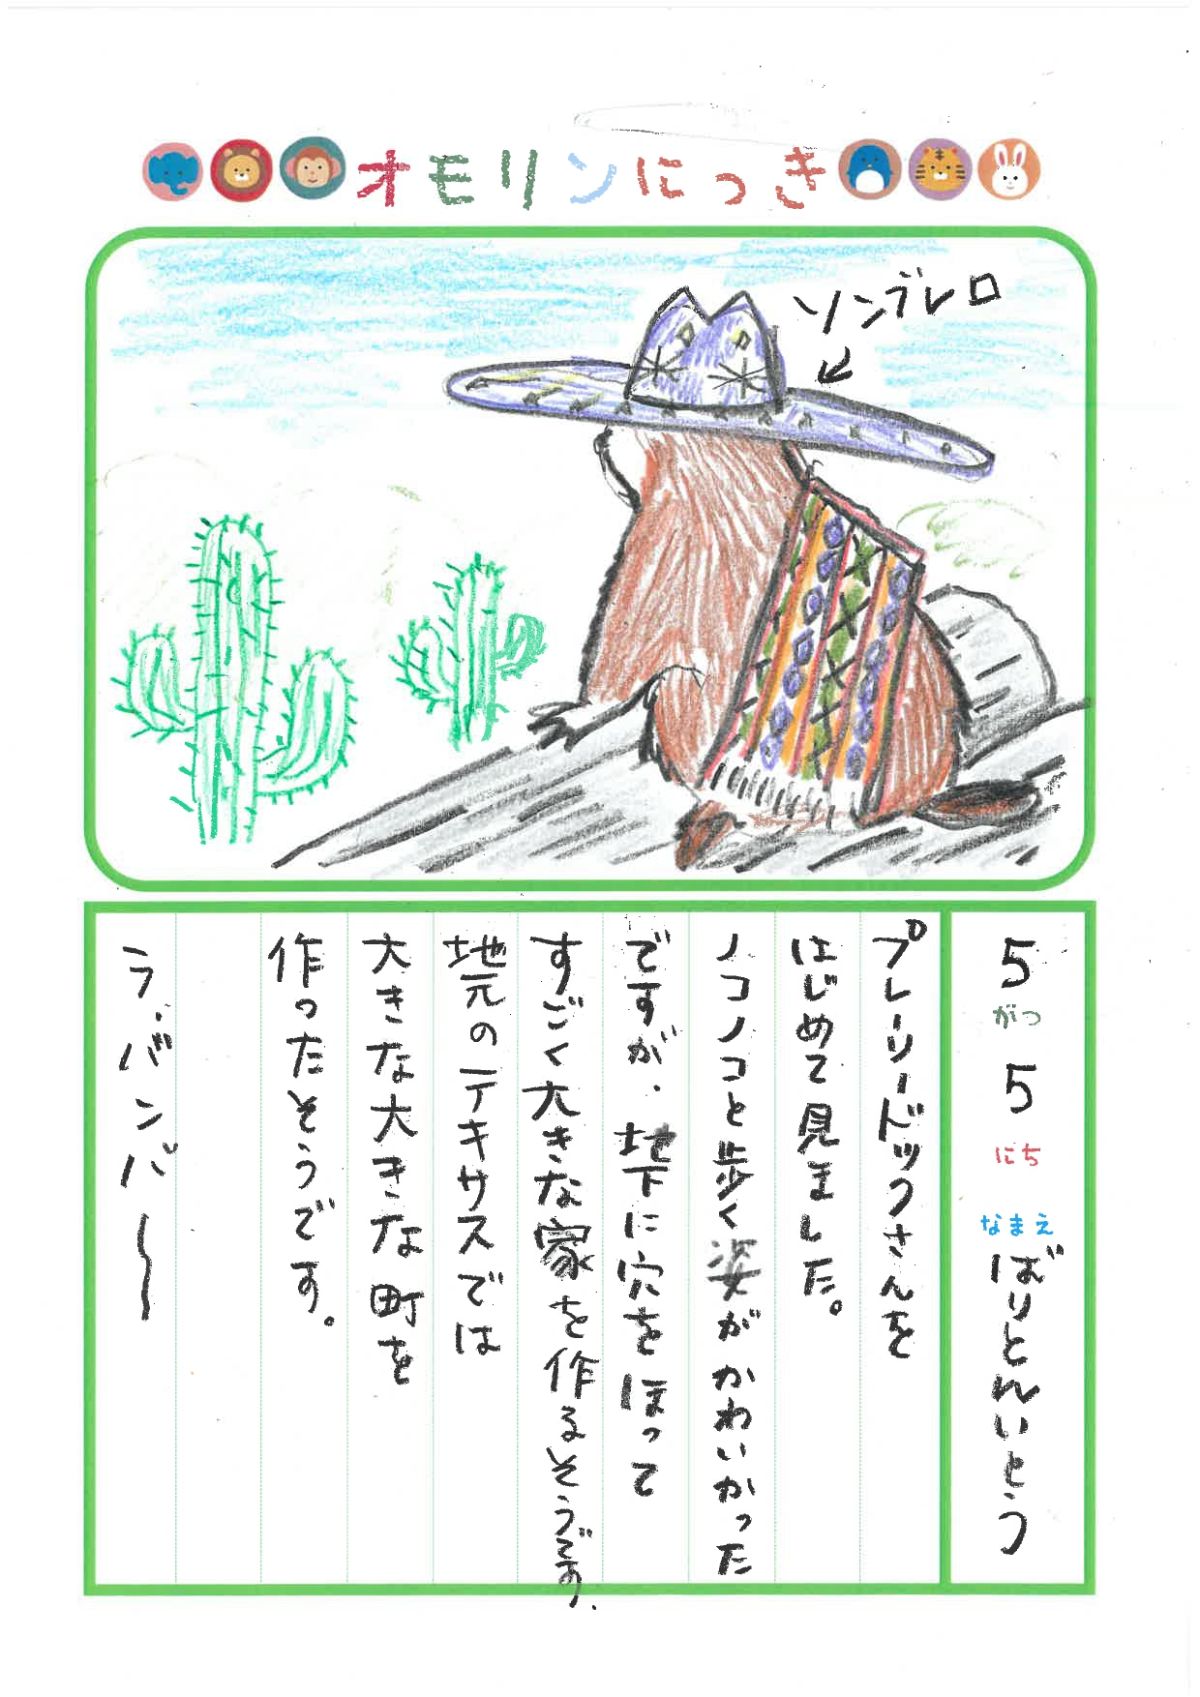 オモリンにっき
ソンブレロ
5がつ5にち なまえ ばりとんいとう
プレーリードックさんを
はじめて見ました。
ノコノコと歩く姿がかわいかった
ですが、地下に穴をほって
すごく大きな家を作るそうです。
地元のテキサスでは
大きな大きな町を
作ったそうです。
ラ・バンバ〜